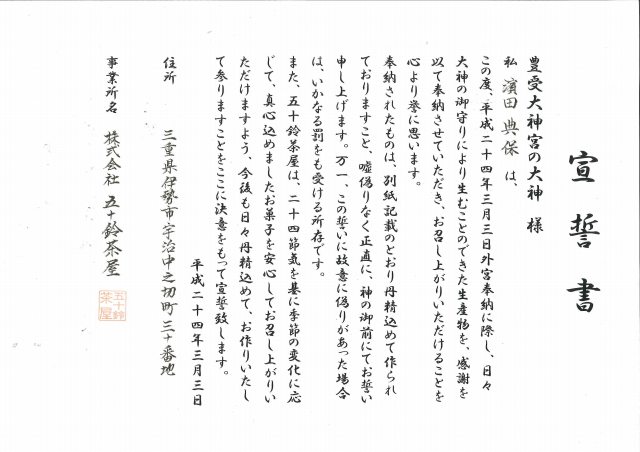 宣誓書
豊受大神宮の大神 様
私 濱田 典保 は、
この度、平成二十四年三月三日外宮奉納に際し、日々
大神の御守りにより生むことのできた生産物を、感謝を
以て奉納させていただき、お召し上がりいただけることを
心より誉に思います。
奉納されたものは、別紙記載のとおり丹精込めて作られ
ておりますこと、嘘偽りなく正直に、神の御前にてお誓い
申し上げます。万一、この誓いに故意に偽りがあった場合
は、いかなる罰をも受ける所存です。
また、五十鈴茶屋は、二十四節気を基に季節の変化に応
じて、真心込めましたお菓子を安心してお召し上がりい
ただけますよう、今後も日々丹精込めて、お作りいたし
て参りますことをここに決意をもって宣誓致します。
平成二十四年三月三日
住所 三重県伊勢市宇治中之切町三十番地
事業所名 株式会社 五十鈴茶屋
五十鈴
茶屋